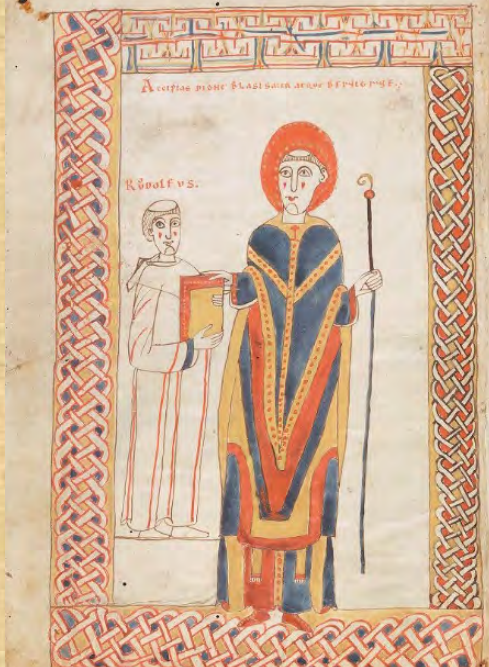 Accipias digne blasi sacra meque benigne.
Růdolfvs.